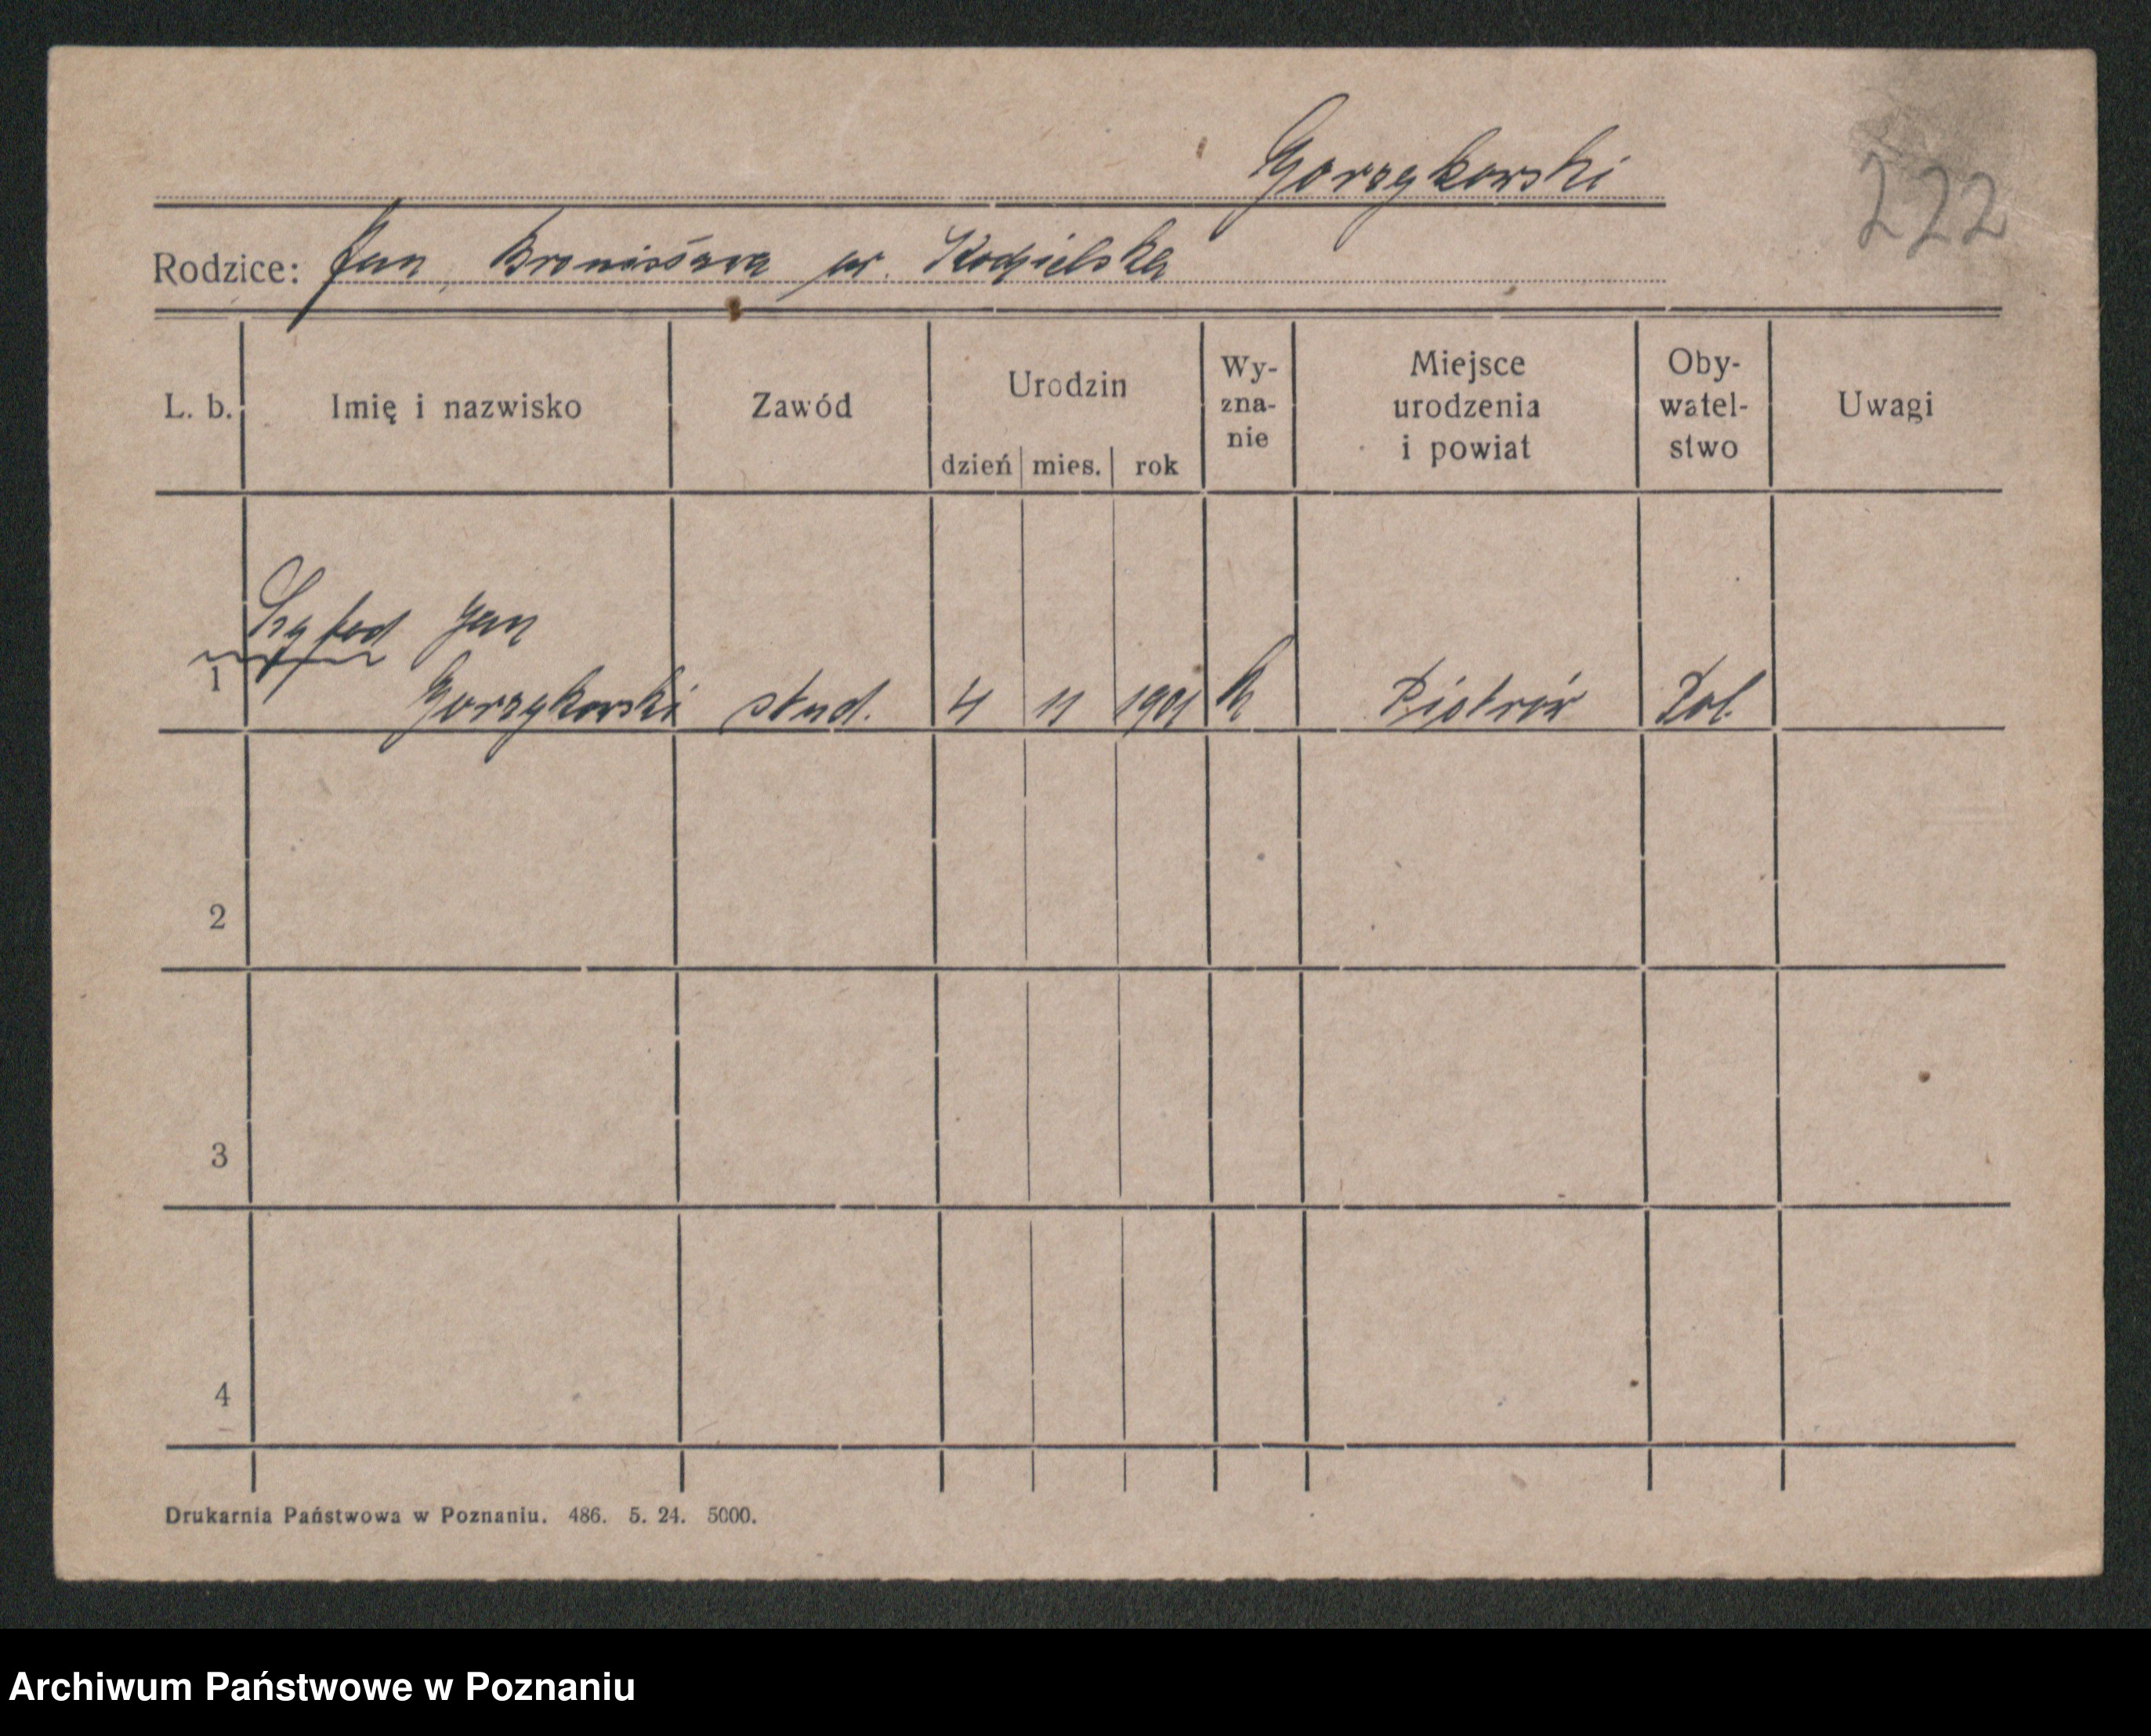 Gorzykowski
222
Rodzice: Jan, Bronisława ur. Kodzielska
L. b. Imię i nazwisko Zawód Urodzin dzień mies. rok Wy-zna-nie Miejsce urodzenia i powiat Oby-watel-stwo Uwagi
Jan
1 Gorzykowski stud. 4 11 1901 k Piotrów Pol.
2
3
4
Drukarnia Państwowa w Poznaniu. 486. 5. 24. 5000.
Archiwum Państwowe w Poznaniu